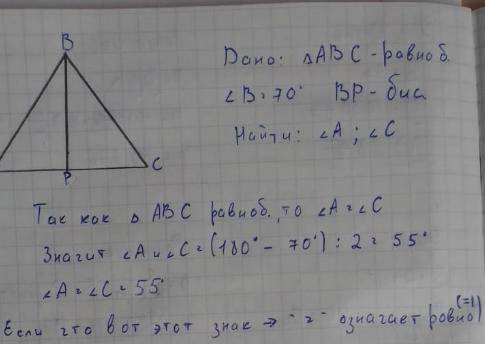 B
C
P
Дано: △ABC - равноб.
∠B = 70° BP - бис
Найти: ∠A ; ∠C
Так как △ ABC равноб., то ∠A = ∠C
Значит ∠A и ∠C = (180° - 70°) : 2 = 55°
∠A = ∠C = 55°
Если что вот этот знак → "=" означает равно (=)